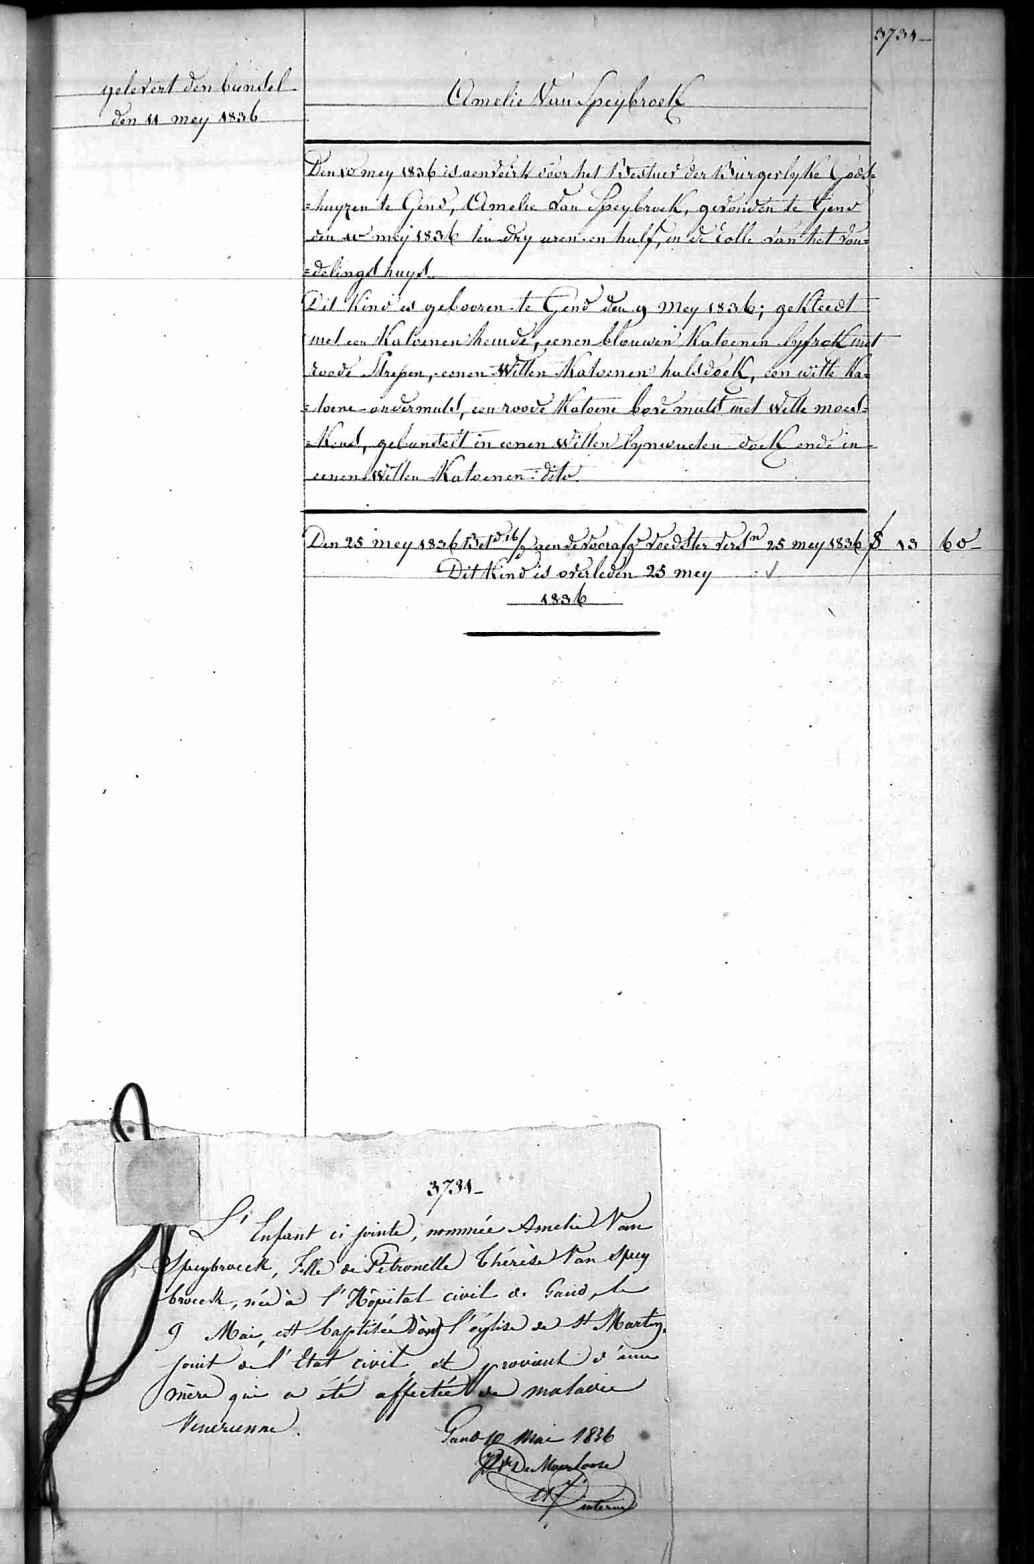 3731_
gelevert den bundel
den 11 mey 1836
Amelie Van Speybroek
Den 10 mey 1836 is aenveirt door het Bestuer der Burgerlyke Gods=
=huyzen te Gend, Amelie Van Speybroek, gevonden te Gend
den 10 mey 1836 ten dry uren en half, in de Rolle van het von=
=delingshuys.
Dit kind is gebooren te Gend den 9 Mey 1836; gekleedt
met een Katoenen hemde, eenen blouwen Katoenen lyfrok met
roode strepen, eenen witten Katoenen halsdoek, een witte Ka=
=toene ondermuts, een roode Katoene bovemuts met witte moes=
=kens, gebunselt in eenen witten lynwaeten doek ende in
eenen witten Katoenen dito.
Den 25 mey 1836 Bet.d 16/ aen de voorafg.e voedster verst.n 25 mey 1836 13 60_
Dit Kind is overleden 25 mey
1836
3731_
L'Enfant ci jointe, nommée Amelie Van
Speybroeck, Fille de Pétronelle Thérèse Van Spey
broeck, née à l'Hôpital civil de Gand, le
9 Mai, est baptisée dans l'église de St Martin,
jouit de l'Etat civil et provient d'une
mère qui a été affectée de maladie
Vénérienne.
Gand 10 Mai 1836
De Moerloose
interne